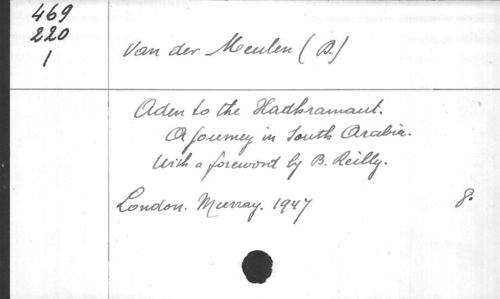 469
220
1
Van der Meulen (D.)
Aden to the Hadhramaut.
A journey in South Arabia.
With a foreword by B. Reilly.
London. Murray. 1947 8.